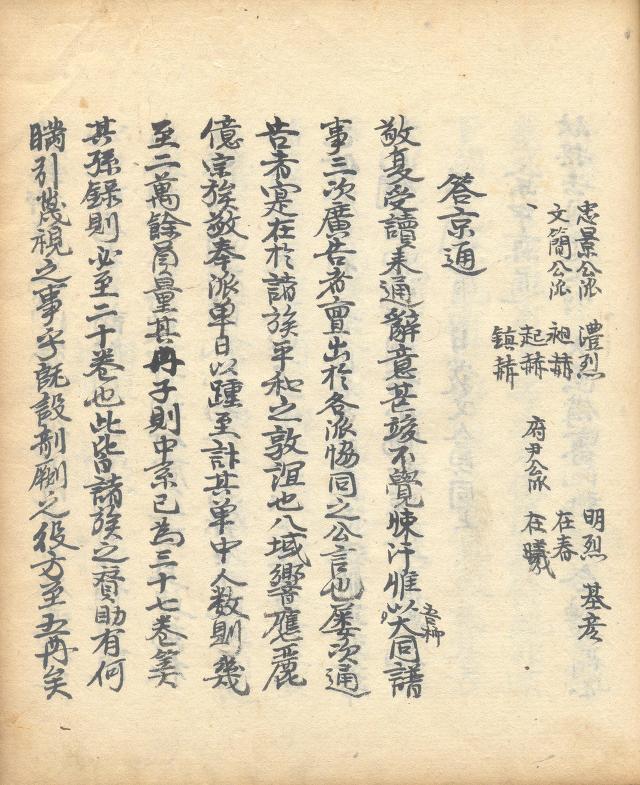 忠景公派 澧烈 明烈 基彦
文簡公派 昶赫 在春
、 起赫 府尹公派 在曦
鎮赫
答京通
敬复受讀来通辭意甚峻不覺悚汗惟以吾柳大同譜
事三次廣告者實出於各派恊同之公言也屡次通
告者寔在於諸族平和之敦誼也八域響應麗
億宗族敬奉派單日以踵至計其單中人数則幾
至二萬餘員量其冊子則中系已為三十七卷矣
其孫錄則必至二十卷也此皆諸族之賛助有何
瞞引蔑視之事乎既設剞劂之役方至五冊矣